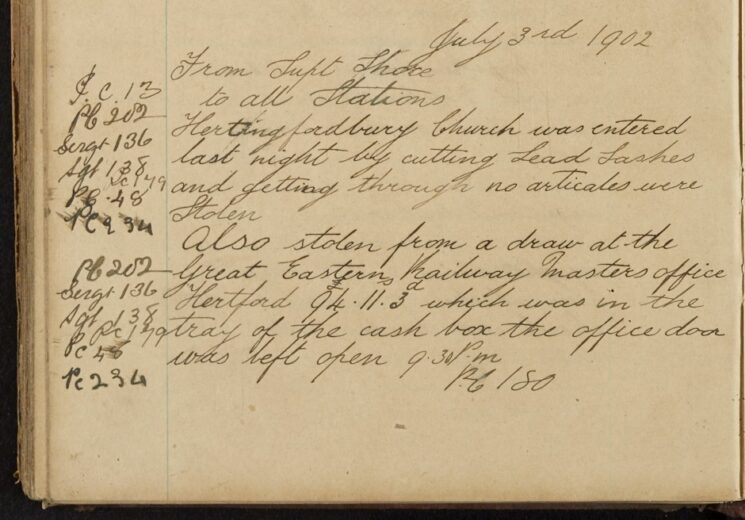 July 3rd 1902
From Supt Shore
to all Stations
Hertingfordbury Church was entered
last night by cutting Lead Lashes
and getting through no articales were
Stolen
Also stolen from a draw at the
Great Eastern Railway Masters office
Hertford 11.3d which was in the
tray of the cash box the office door
was left open 9.30 P.m
PC 180
P.C. 13
PC 202
Sergt 136
Sgt 138
Pc 179
PC 48
PC 234
PC 202
Sergt 136
Sgt 138
Pc 179
Pc 48
Pc 234